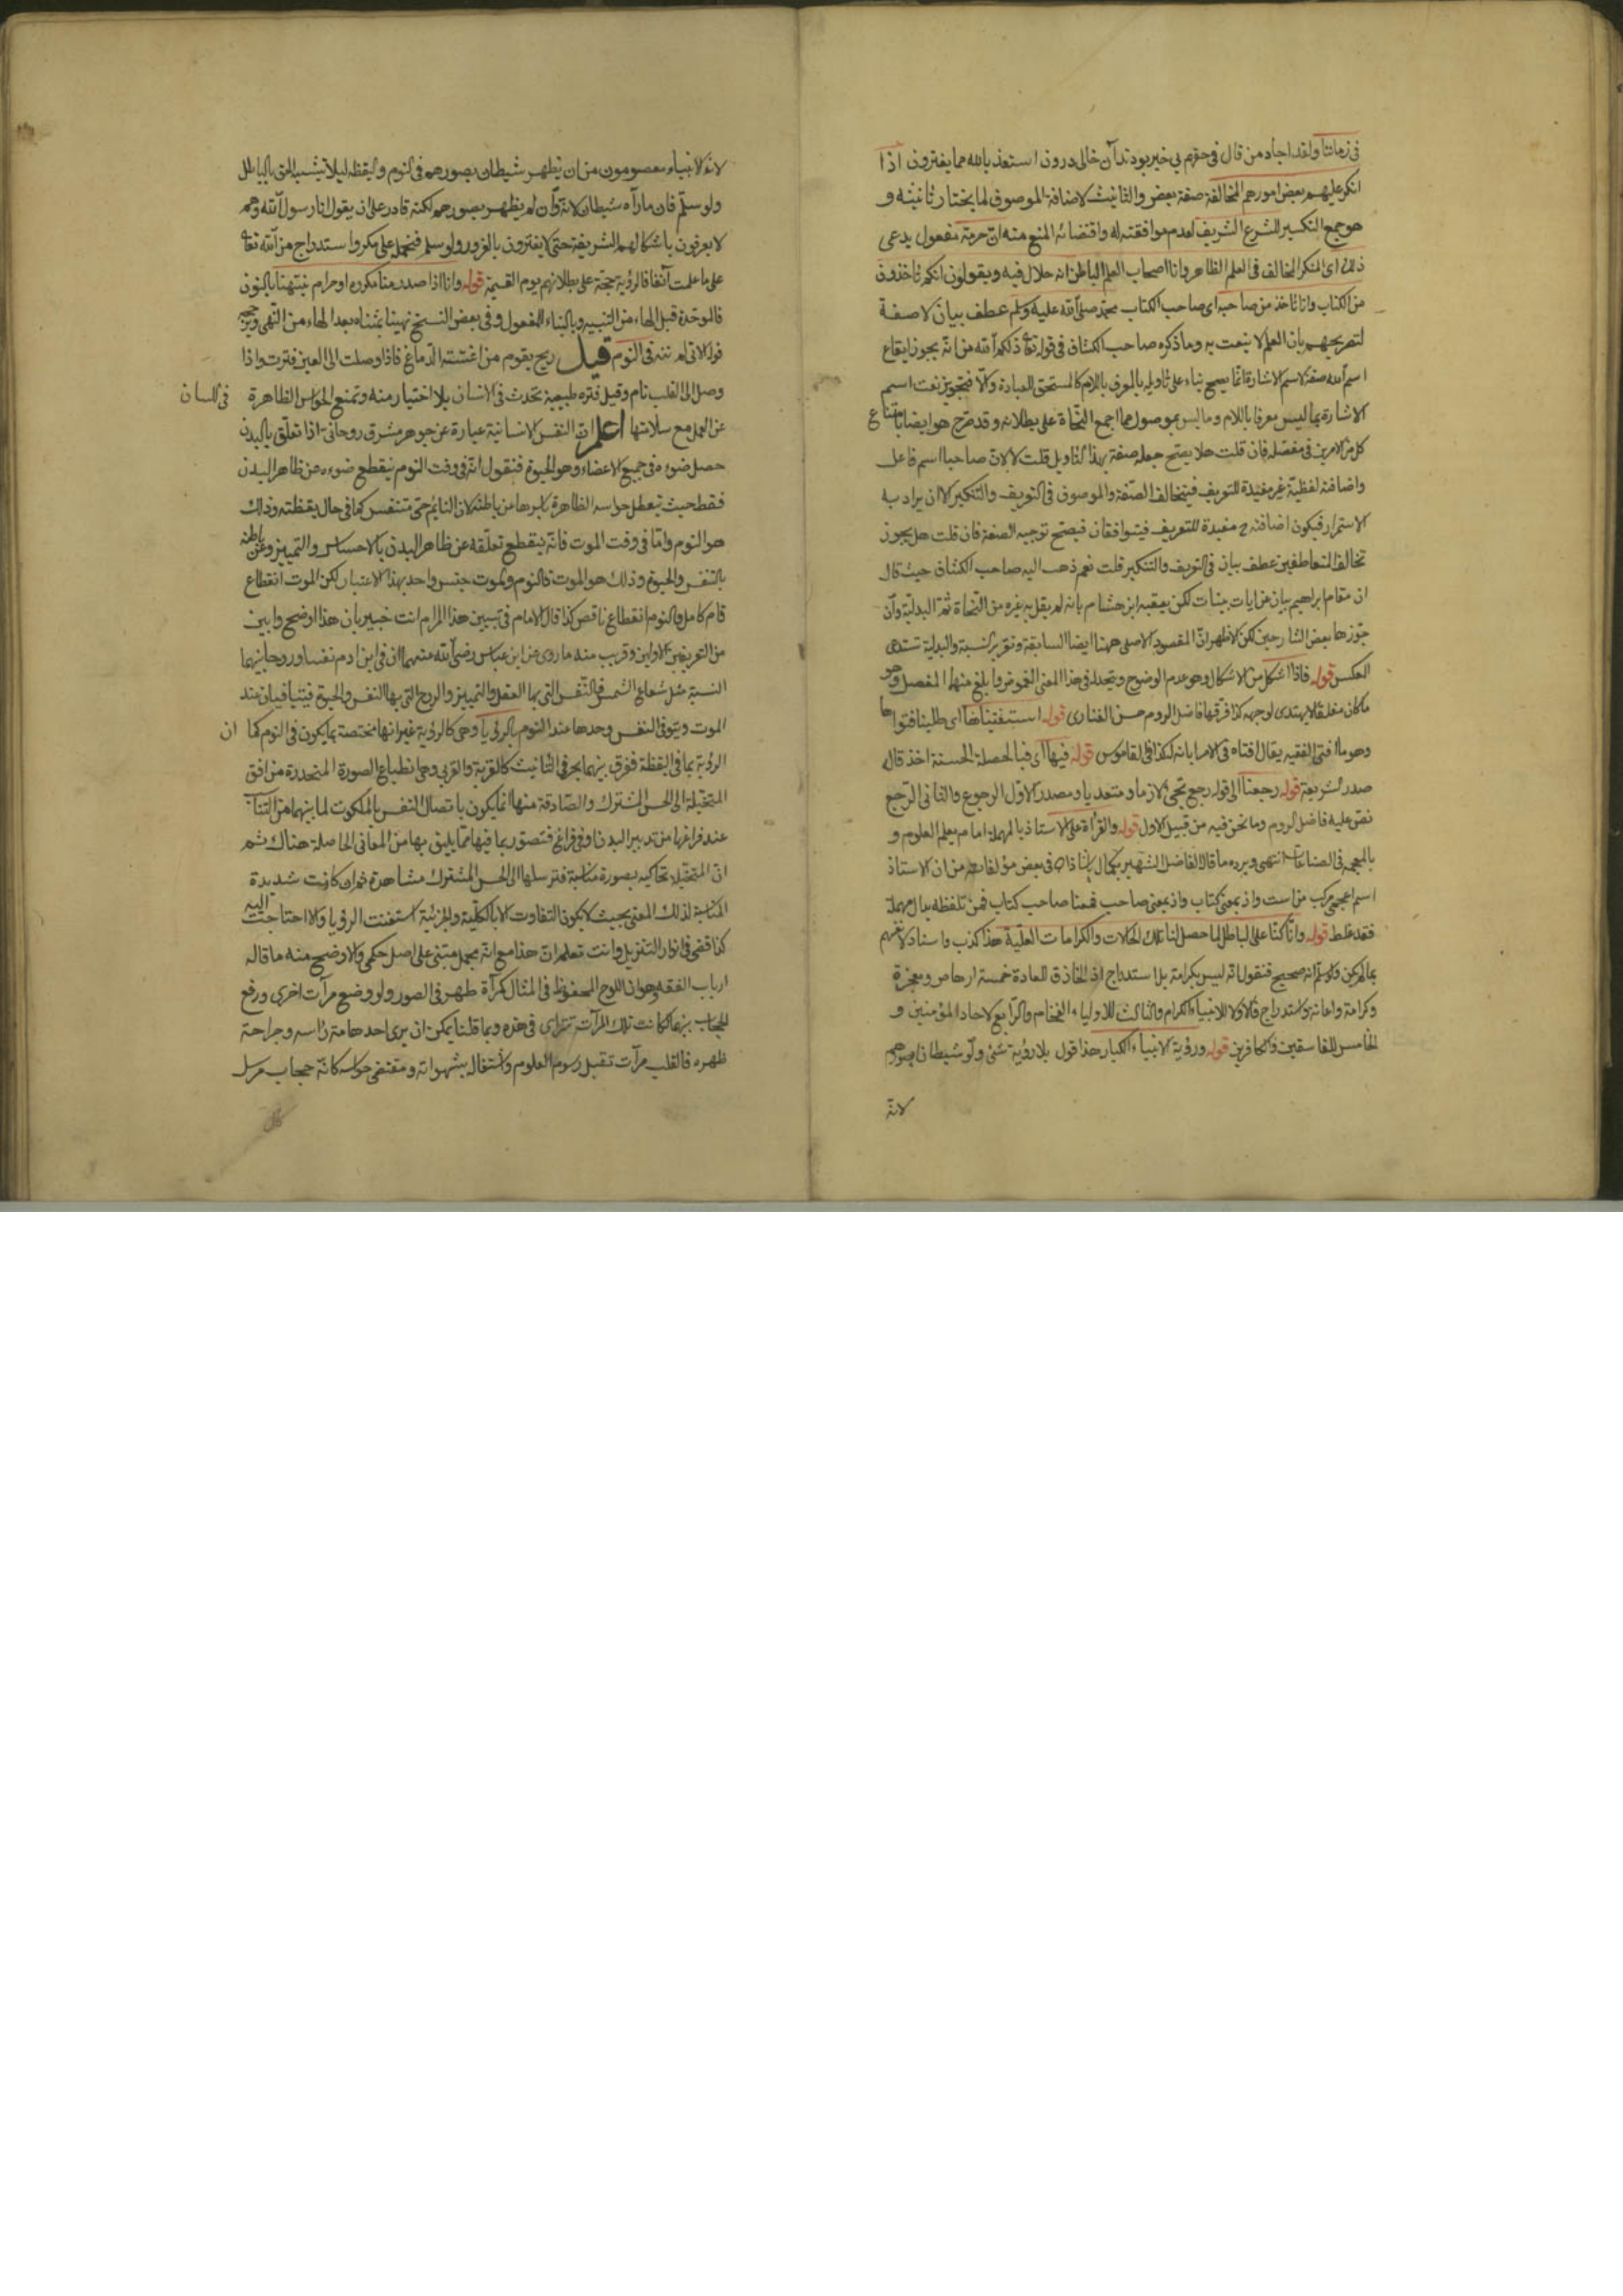 في زماننا ولقد اجاد من قال في حقهم بي خبر بودند آن خالي درون استعذ بالله مما يفترون اذا
انكر عليهم بعض امورهم المخالفة صفة بعض والتانيث لاضافة الموصوف لما يختار تانيثه و
هو جمع التكسير للشرع الشريف لعدم موافقته له واقتضائه المنع منه ان حرمة مفعول يدعى
ذلك اى المنكر المخالف في العلم الظاهر وانا اصحاب العلم الباطن انه حلال فيه ويقولون انكم تاخذون
من الكتاب وانا ناخذ من صاحبه اى صاحب الكتاب محمد صلى الله عليه وسلم عطف بيان لا صفة
لتصريحهم بان العلم لا ينعت به وما ذكره صاحب الكشاف في قوله تعالى ذلكم الله من انه يجوز ايقاع
اسم الله صفة لاسم الاشارة انما يصح بناء على تاويله بالمعرف باللام كالمستحق للعبادة والا فتجويز نعت اسم
الاشارة بما ليس معرفا باللام وما ليس بموصول مما اجمع النحاة على بطلانه وقد صرح هو ايضا بامتناع
كل من الامرين في مفصله فان قلت هلا يصح جعله صفة بهذا التاويل قلت لا لان صاحبا اسم فاعل
واضافته لفظية غير مفيدة للتعريف فيتخالف الصفة والموصوف في التعريف والتنكير الا ان يراد به
الاستمرار فيكون اضافته ح مفيدة للتعريف فيتوافقان فيصح توجيه الصفة فان قلت هل يجوز
تخالف المتعاطفين عطف بيان في التعريف والتنكير قلت نعم ذهب اليه صاحب الكشاف حيث قال
ان مقام ابراهيم بيان عن ايات بينات لكن تعقبه ابن هشام بانه لم يقل به غيره من النحاة ثم البدلية وان
جوزها بعض الشارحين لكن الاظهر ان المقصود الاصلي ههنا ايضا السابقة وتقرير النسبة والبدلية تستدعى
العكس قوله فاذا اشكل من الاشكال وهو عدم الوضوح ويتحد في هذا المعنى الغموض وابلغ منهما المفصل وهو
ما كان مغلقا لا يهتدى لوجهه كذا فرقها فاضل الروم حسن الفنارى قوله استفتيناها اى طلبنا فتواها
وهو ما افتى الفقيه يقال افتاه في الامر ابانه له كذا في القاموس قوله فيها اى فبالحصلة الحسنة اخذ قاله
صدر الشريعة قوله رجعنا الى قوله رجع يجئ لازما ومتعديا ومصدر الاول الرجوع والثاني الرجع
نص عليه فاضل الروم وما نحن فيه من قبيل الاول قوله والقراة على الاستاذ بالمهملة امام يعلم العلوم و
بالمعجمة في الصناعات انتهى ويرده ما قال الفاضل الشهير بكمال پاشا زاده في بعض مؤلفاته من ان الاستاذ
اسم اعجمي مركب من است واذ بمعنى كتاب واذ بمعنى صاحب فمعنا صاحب كتاب فمن تلفظه بدال مهملة
فقد غلط قوله وانا كنا على الباطل لما حصل لنا تلك الحالات والكرامات العلية هذا كذب واسناد لانفسهم
بما لم يكن ولو سلم انه صحيح فنقول انه ليس بكرامة بل استدراج اذ الخارق للعادة خمسة ارهاص ومعجزة
وكرامة واعانة واستدراج فالاولان للانبياء الكرام والثالث للاولياء الفخام والرابع لاحاد المؤمنين و
الخامس للفاسقين والكافرين قوله ورؤية الانبياء الكبار هذا قول بلا رؤية شئ ولو شيطانا بصورهم
لانه
لان الانبياء معصومون من ان يظهر شيطان بصورهم في النوم واليقظة ليلا يشتبه الحق بالباطل
ولو سلم فان ما رآه شيطان لانه وان لم يظهر بصورهم لكنه قادر على ان يقول انا رسول الله وهم
لا يعرفون باشكالهم الشريفة حتى لا يفترون بالغرور ولو سلم فيحمل على مكر واستدراج من الله تعالى
على ما علمت آنفا فالرؤية حجة على بطلانهم يوم القيمة قوله وانا اذا صدر منا مكروه او حرام نبهنا بالنون
فالموحدة قبل الهاء من التنبيه وبالبناء للمفعول وفي بعض النسخ نهينا بمثناه بعد الهاء من النهي ويرجحه
قوله الاتى لم ننه في النوم قيل ريح يقوم من اغشية الدماغ فاذا وصلت الى العين فترت واذا
وصل الى القلب نام وقيل فترة طبيعية تحدث في الانسان بلا اختيار منه وتمنع الحواس الظاهرة في اللسان
عن العمل مع سلامتها اعلم ان النفس الانسانية عبارة عن جوهر مشرق روحاني اذا تعلق بالبدن
حصل ضوءه في جميع الاعضاء وهو الحيوة فنقول انه في وقت النوم ينقطع ضوءه عن ظاهر البدن
فقط حيث يعطل حواسه الظاهرة باسرها عن باطنه لان النايم حى متنفس كما في حال يقظته وذلك
هو النوم واما في وقت الموت فانه ينقطع تعلقه عن ظاهر البدن بالاحساس والتمييز وعن باطنه
بالنفس والحيوة وذلك هو الموت فالنوم والموت جنس واحد بهذا الاعتبار لكن الموت انقطاع
تام كامل والنوم انقطاع ناقص كذا قال الامام في تبيين هذا المرام انت خبير بان هذا اوضح وابين
من التعريفين الاولين وقريب منه ما روى عن ابن عباس رضى الله عنهما ان في ابن ادم نفسا وروحا بينهما
النسبة مثل شعاع الشمس فالنفس التي بها العقل والتمييز والروح التي بها النفس والحيوة فيتوفيان عند
الموت ويتوفى النفس وحدها عند النوم بالرؤيا وهي كالرؤية غير انها مختصة بما يكون في النوم كما ان
الرؤية بما في اليقظة ففرق بينهما بحرفي التانيث كالقربة والقربى وهي انطباع الصورة المنحدرة من افق
المتخيلة الى الحس المشترك والصادقة منها انما يكون باتصال النفس بالملكوت لما بينهما من التناسب
عند فراغها من تدبير البدن اوفى فراغ فتصور بما فيها مما يليق بها من المعاني الحاصلة هناك ثم
ان المتخيلة تحاكيه بصورة مناسبة فترسلها الى الحس المشترك مشاهدة ثم ان كانت شديدة
المناسبة لذلك المعنى بحيث لا يكون التفاوت الا بالكلية والجزئية استغنت الرؤيا والا احتاجت اليه
كذا قضى في انوار التنزيل وانت تعلم ان هذا مع انه مجمل مبتنى على اصل حكمي والاوضح منه ما قاله
ارباب الفقه وهو ان اللوح المحفوظ في المثال كمرآة ظهر في الصور ولو وضع مرآت اخرى ورفع
الحجاب بينهما كانت تلك المرآت تتراى في هذه وبما قلنا يمكن ان يرى احدها مة راسه وجراحة
ظهره فالقلب مرآت تقبل رسوم العلوم واشتغاله بشهواته ومقتضى حواسه كانه حجاب مرسل